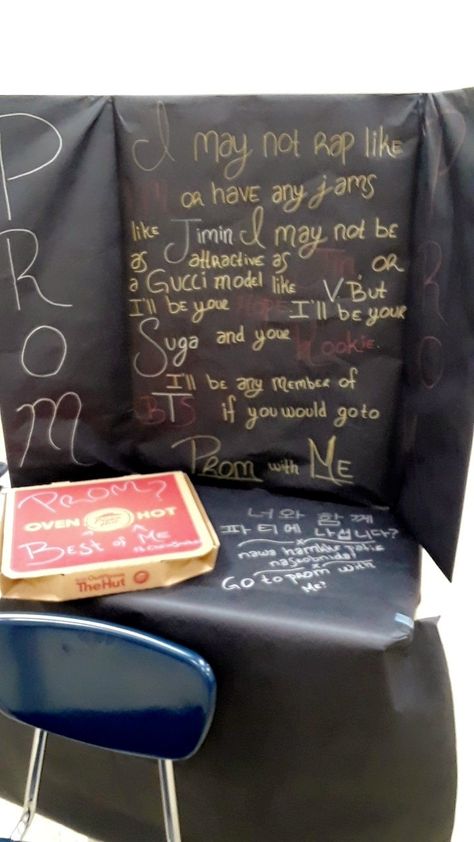 PROM
I may not rap like
or have any jams
like Jimin I may not be
as attractive as Jin, or
a Gucci model like V. But
I'll be your HOPE I'll be your
Suga and your Kookie.
I'll be any member of
BTS if you would go to
Prom with Me
PRO
PROM?
OVEN HOT
Best of Me
TheHut
너와 함께
파티에 나섭니다?
nawa hamkke patie
naseobnida?
Go to prom with
Me?